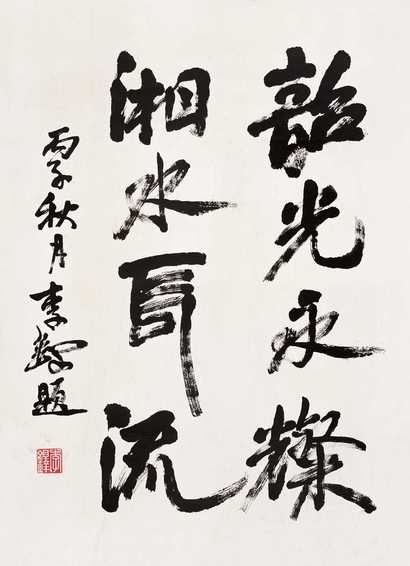 韶光永燦
湘水長流
丙子秋月李鐸題
李鐸